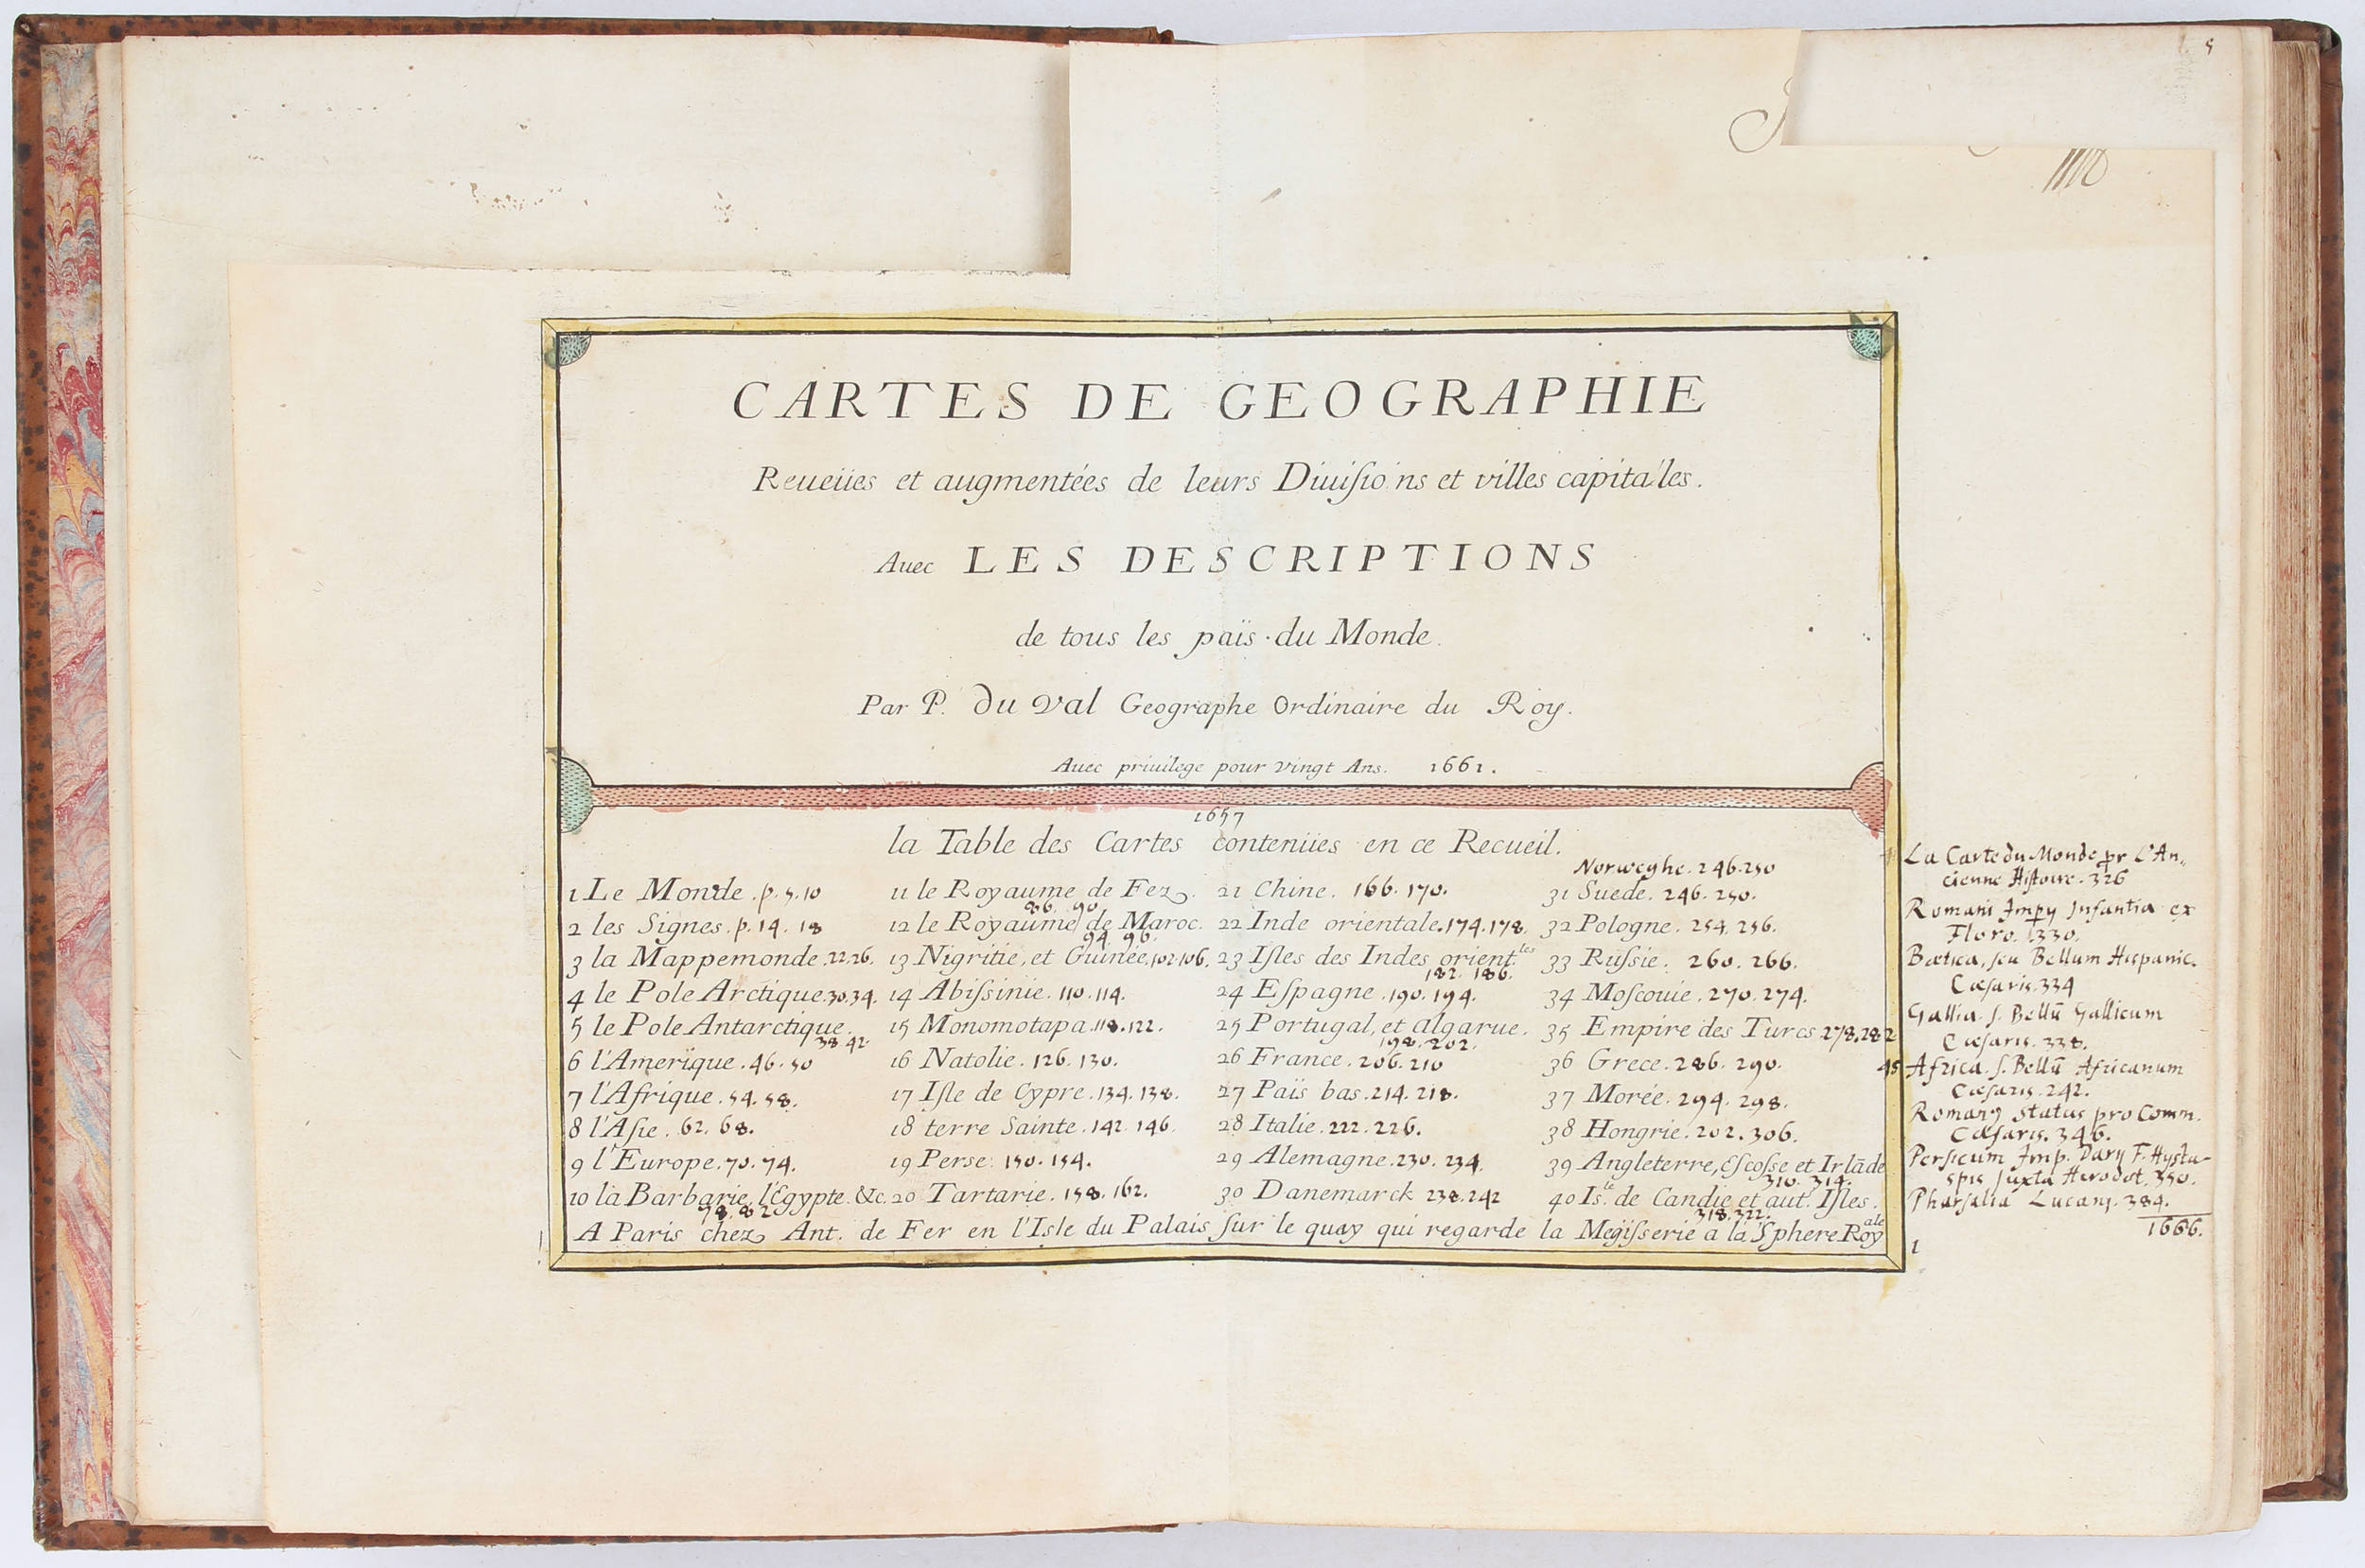 5
CARTES DE GEOGRAPHIE
Reueües et augmentées de leurs Diuiſions et villes capitales.
Auec LES DESCRIPTIONS
de tous les païs du Monde.
Par P. du Val Geographe Ordinaire du Roy.
Auec priuilege pour vingt Ans. 1661.
1657
la Table des Cartes contenües en ce Recueil.
1 Le Monde. p. 5. 10
2 les Signes. p. 14. 18
3 la Mappemonde. 22. 26.
4 le Pole Arctique. 30. 34.
5 le Pole Antarctique.
38. 42
6 l'Amerique. 46. 50
7 l'Afrique. 54. 58.
8 l'Aſie. 62. 68.
9 l'Europe. 70. 74.
10 la Barbarie, l'Egypte. &c.
78. 82
11 le Royaume de Fez.
86. 90
12 le Royaume de Maroc.
94. 96.
13 Nigritie, et Guinée. 102. 106.
14 Abiſsinie. 110. 114.
15 Monomotapa. 118. 122.
16 Natolie. 126. 130.
17 Iſle de Cypre. 134. 138.
18 terre Sainte. 142. 146.
19 Perse. 150. 154.
20 Tartarie. 158. 162.
21 Chine. 166. 170.
22 Inde orientale. 174. 178.
23 Iſles des Indes orient.les
182. 186.
24 Eſpagne. 190. 194.
25 Portugal, et Algarue.
198. 202.
26 France. 206. 210
27 Païs bas. 214. 218.
28 Italie. 222. 226.
29 Alemagne. 230. 234.
30 Danemarck 238. 242
Norweghe. 246. 250
31 Suede. 246. 250.
32 Pologne. 254. 256.
33 Ruſsie. 260. 266.
34 Moſcouie. 270. 274.
35 Empire des Turcs 278. 282
36 Grece. 286. 290.
37 Morée. 294. 298.
38 Hongrie. 202. 306.
39 Angleterre, Eſcoſse et Irlãde
310. 314.
40 Is.le de Candie et aut. Iſles.
318. 322.
A Paris chez Ant. de Fer en l'Isle du Palais ſur le quay qui regarde la Megiſserie a la Sphere Royale
La Carte du Monde pr L'An-
cienne Hiſtoire. 326
Romani Impy Infantia ex
Floro. 330.
Bœtica, ſeu Bellum Hispanic.
Cæſaris. 334
Gallia. ſ. Bellũ Gallicum
Cæſaris. 338.
45 Africa. ſ. Bellũ Africanum
Cæſaris. 242.
Romani Status pro Comm.
Cæſaris. 346.
Persicum Imp. Darij F. Hysta-
spis juxta Herodot. 350.
Pharſalia Lucani. 384.
1666.
1